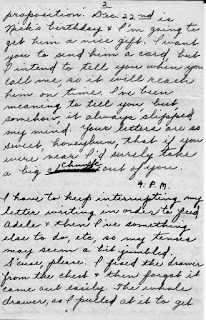 2
proposition. Dec. 22nd is
Nick's birthday & I'm going to
get him a nice gift. I want
you to send him a card but
I intend to tell you when you
call me, so it will reach
him on time. I've been
meaning to tell you but
somehow, it always slipped
my mind. Your letters are so
sweet, honeybun, that if you
were near I'd surely take
a big chunk out of you.
9 P.M.
I have to keep interrupting my
letter writing in order to feed
Adele & then I've something
else to do, etc, so my tenses
may seem a bit jumbled.
S'cuse, please. I fixed the drawer
from the chest & then forgot it
came out easily. The whole
drawer, as I pulled at it to get